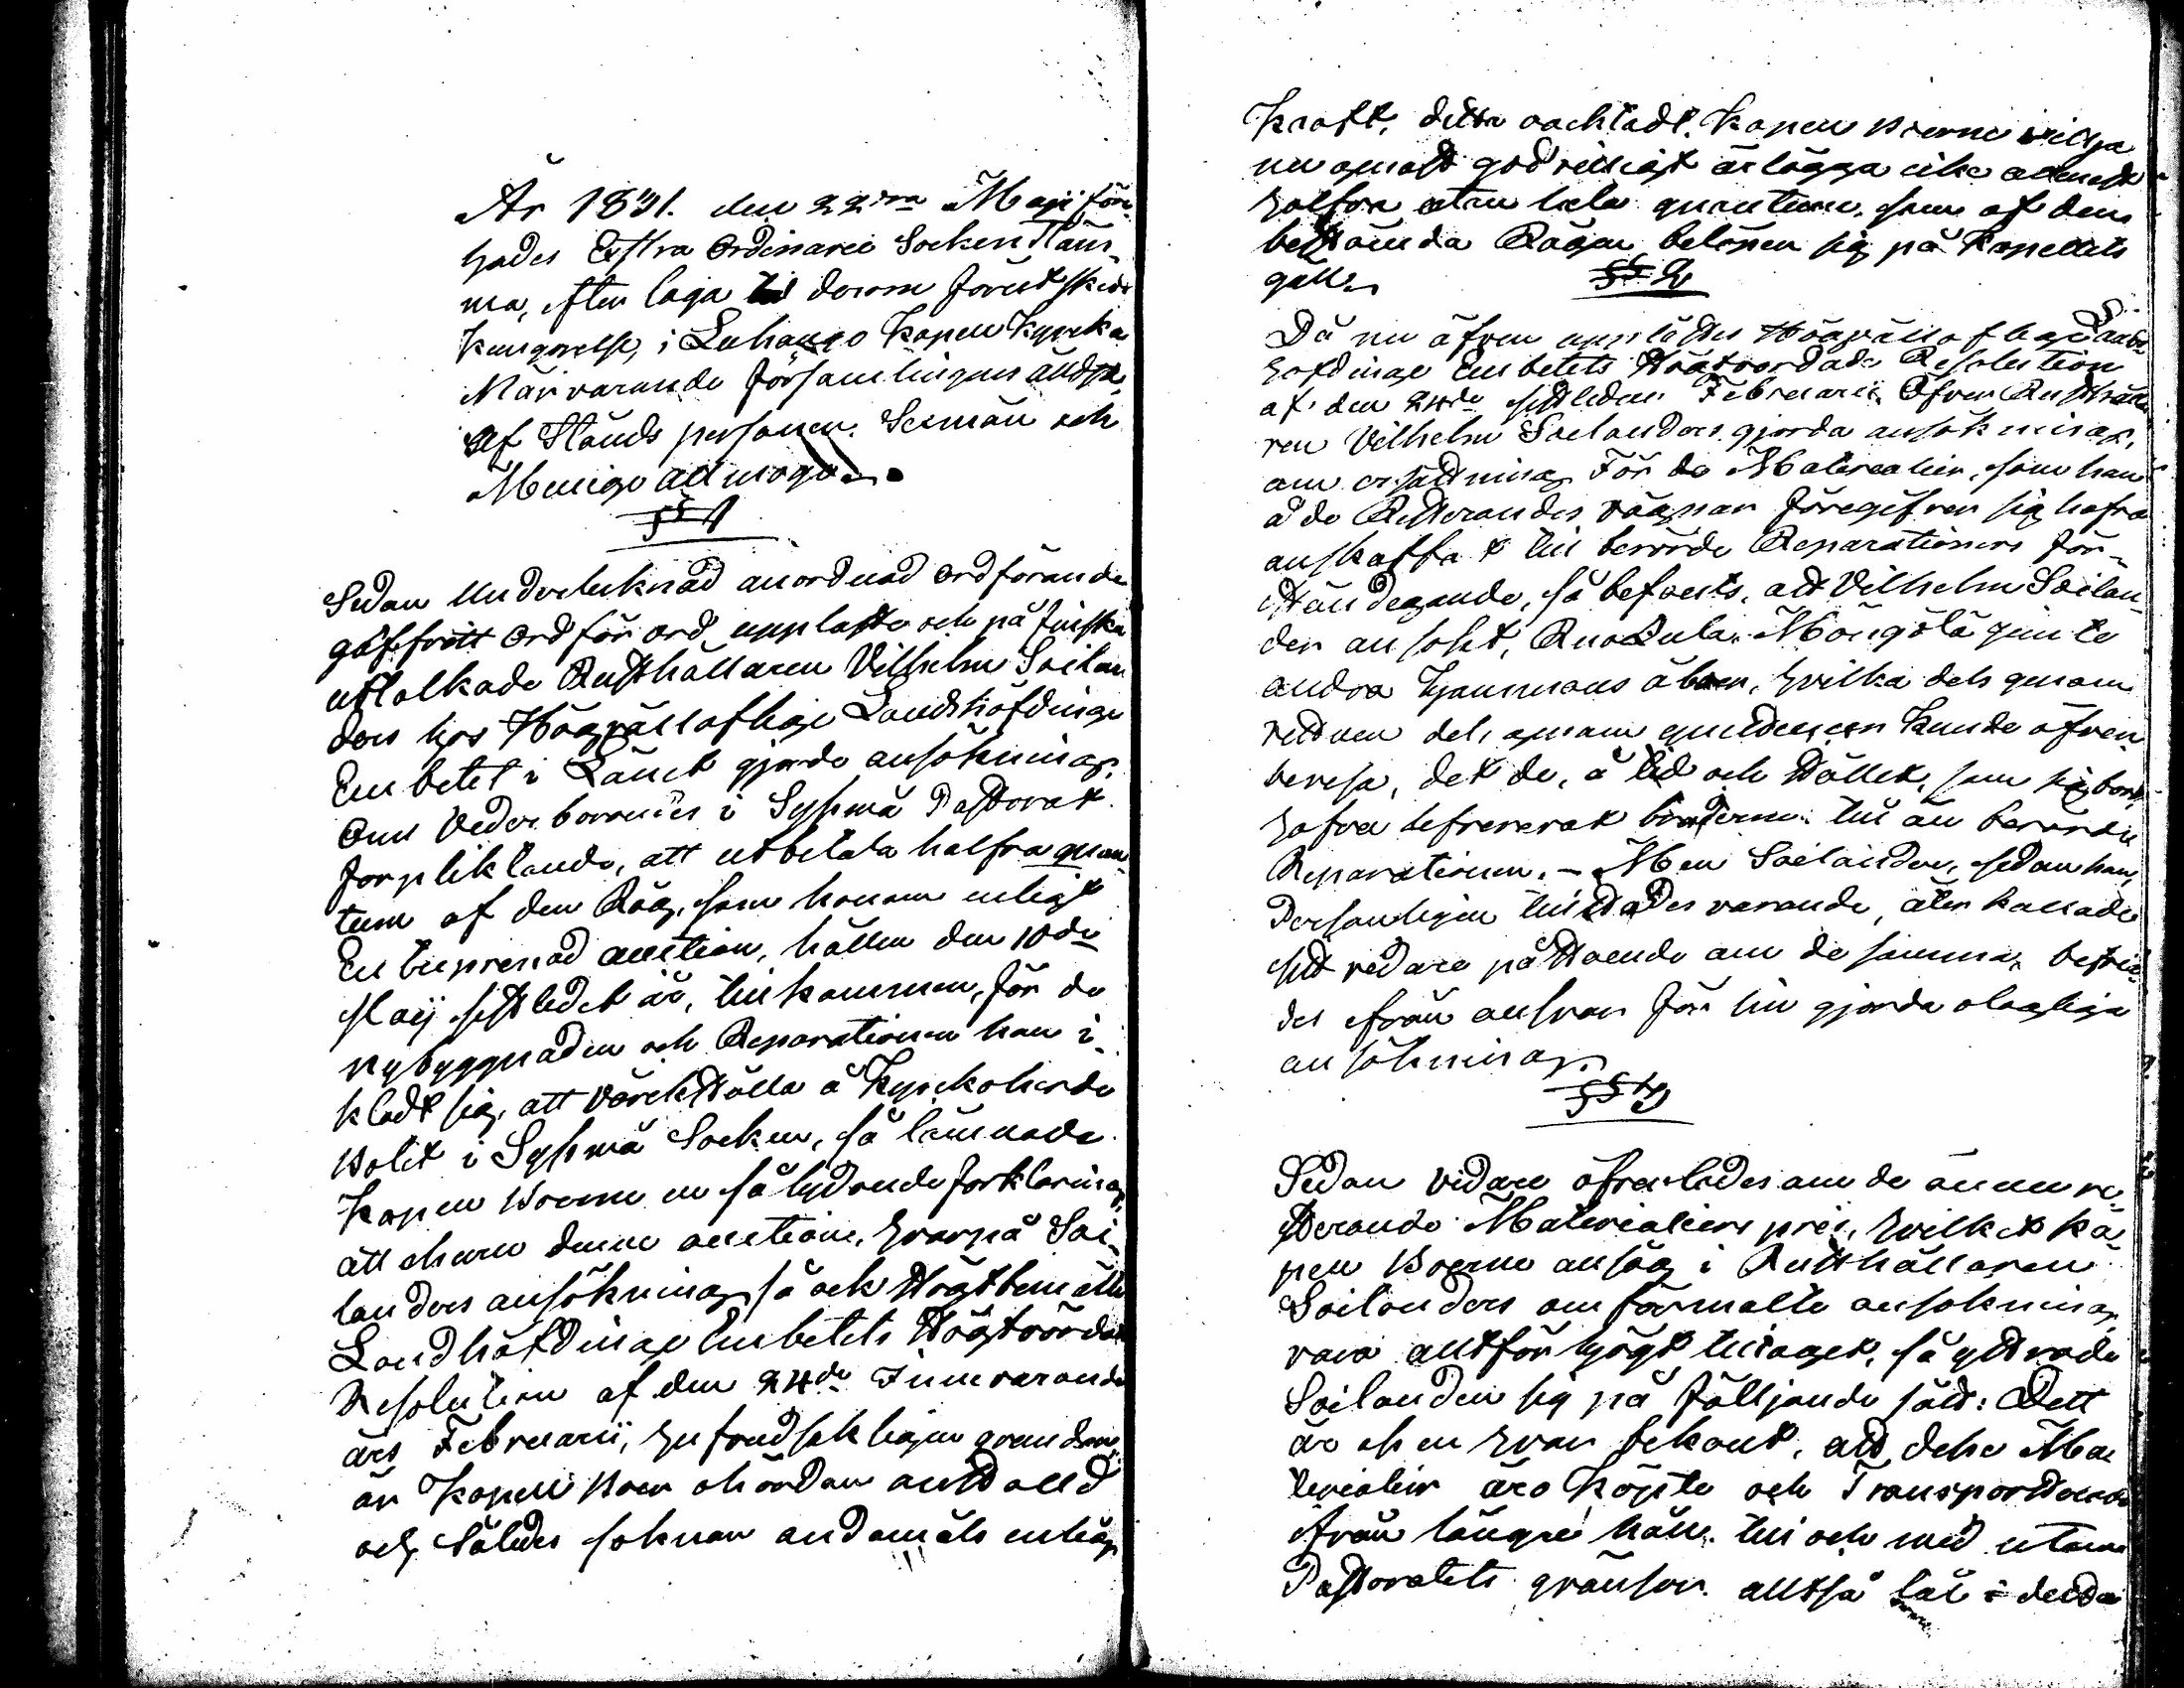 År 1831. den 22dra Maji för¬
hades Extra Ordinarie Socken Stäm¬
ma, efter laga derom förut skedd
kungörelse, i Luhango Kapell Kyrka
Närvarande församlingens
Af Stånds personer. Sexmän och
Menige allmoge.
§§ 1
Sedan Undertecknad anordnad ordförande
ord för ord upplästs och på finska
uttolkade Rusthållaren Vilhelm Soilan
ders hos Högvällofliga Landshöfdinge
Embetet i Länet gjorda ansökning,
Om Vederbörandes i Sysmä Pastorat
förpliktande, att utbetala halfva quan¬
tum af den Råg, som honom enligt
Entreprenad auction, hållen den 10de
Maij sistledet år, tillkommer, för de
nybyggnader och Reparationer han i¬
klädt sig, att värckställa å Kyrckoherde
Bolet i Sysmä Socken, så lämnade
Kapell Boerne en så lydande förklaring,
att ehuru denne auction, hvarpå Soi¬
landers ansökning så ock Högtbemälte
Landhöfdinge Embetets Högtvördade
Resolution af den 24de Innevarande
års Februarii, hufvudsakligen grundar
är Kapell Boer ohördan anstalld
och således saknar ändamåls enlig
kraft, detta oachtadt Kapell Boerne vilja
nu genast godvilligt ärlägga icke allenast
halfva utan hela quantum, som af den
bestämda Rågen belöper sig på Kapellets
gäll.
§§ 2
Då nu äfven upplästes Högvällofliga Lands
höfdinge Embetets Högtvördade Resolution
af den 24de sistleden Februarii Öfver Rusthålla
ren Vilhelm Soilanders gjorda ansökning,
om ersättning För de Materialier, som han
å de Resterandes vägnar föregifver sig hafva
anskaffat till berörde Reparationers för¬
ståndegande, så befants, att Vilhelm Soilan
der ansökt, Mångölä jemte
andra Hemmans åboer, hvilka dels genom
vittnen dels genom quittencer kunde öfver
bevisa, det de, å tid och ställe, som sig bort
hafva levererat till än berörde
Reparationer. – Men Soilander, sedan han,
Personligen tillstädes varande, återkallade
sitt vidare påstående om de samma, befria¬
des ifrån ansvar för sin gjorda olagliga
ansökning.
§§ 3
Sedan vidare öfverlades om de ännu re¬
sterande Materialiers pris, hvilket Ka¬
pell Boerne ansåg i Rusthållaren
Soilanders omförmälte ansökning
vara alltför högt tilltaget, så yttrade
Soilander sig på följande sätt: Dett
är en hvar bekant, att dehe Ma
terialier äro köpte och Transporterade
ifrån längre håll till och med utom
Pastoratets gränsor alltså